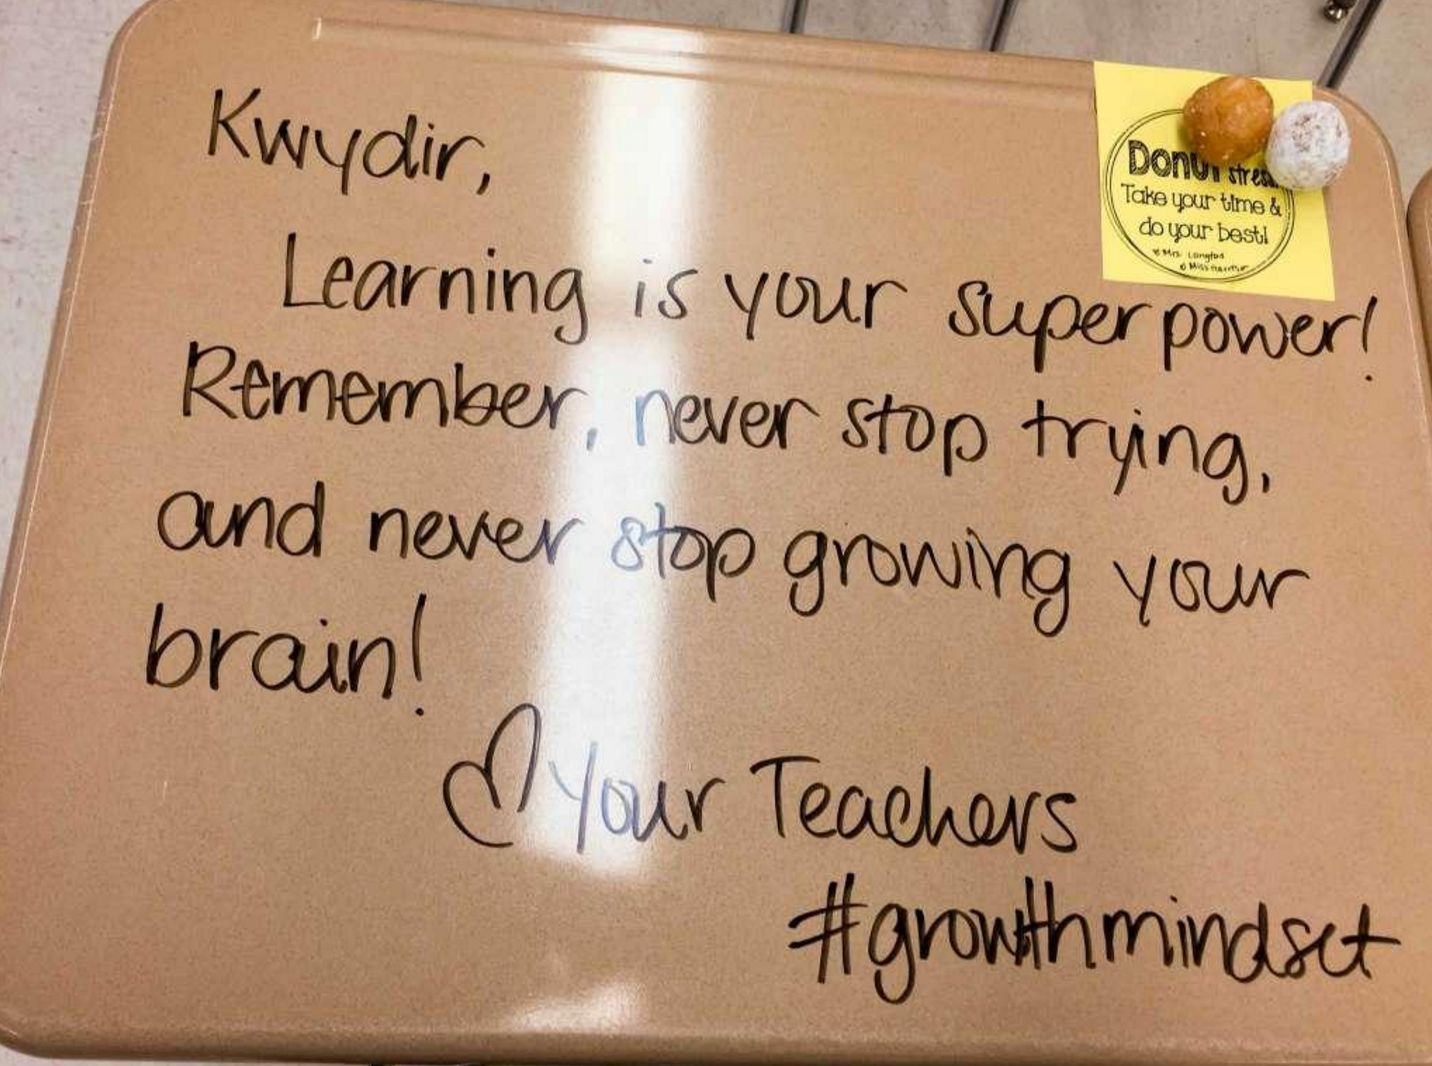 Kwydir,
Learning is your superpower!
Remember, never stop trying,
and never stop growing your
brain!
♡ Your Teachers
#growthmindset
DONUT stress
Take your time &
do your best!
Mrs.
Miss